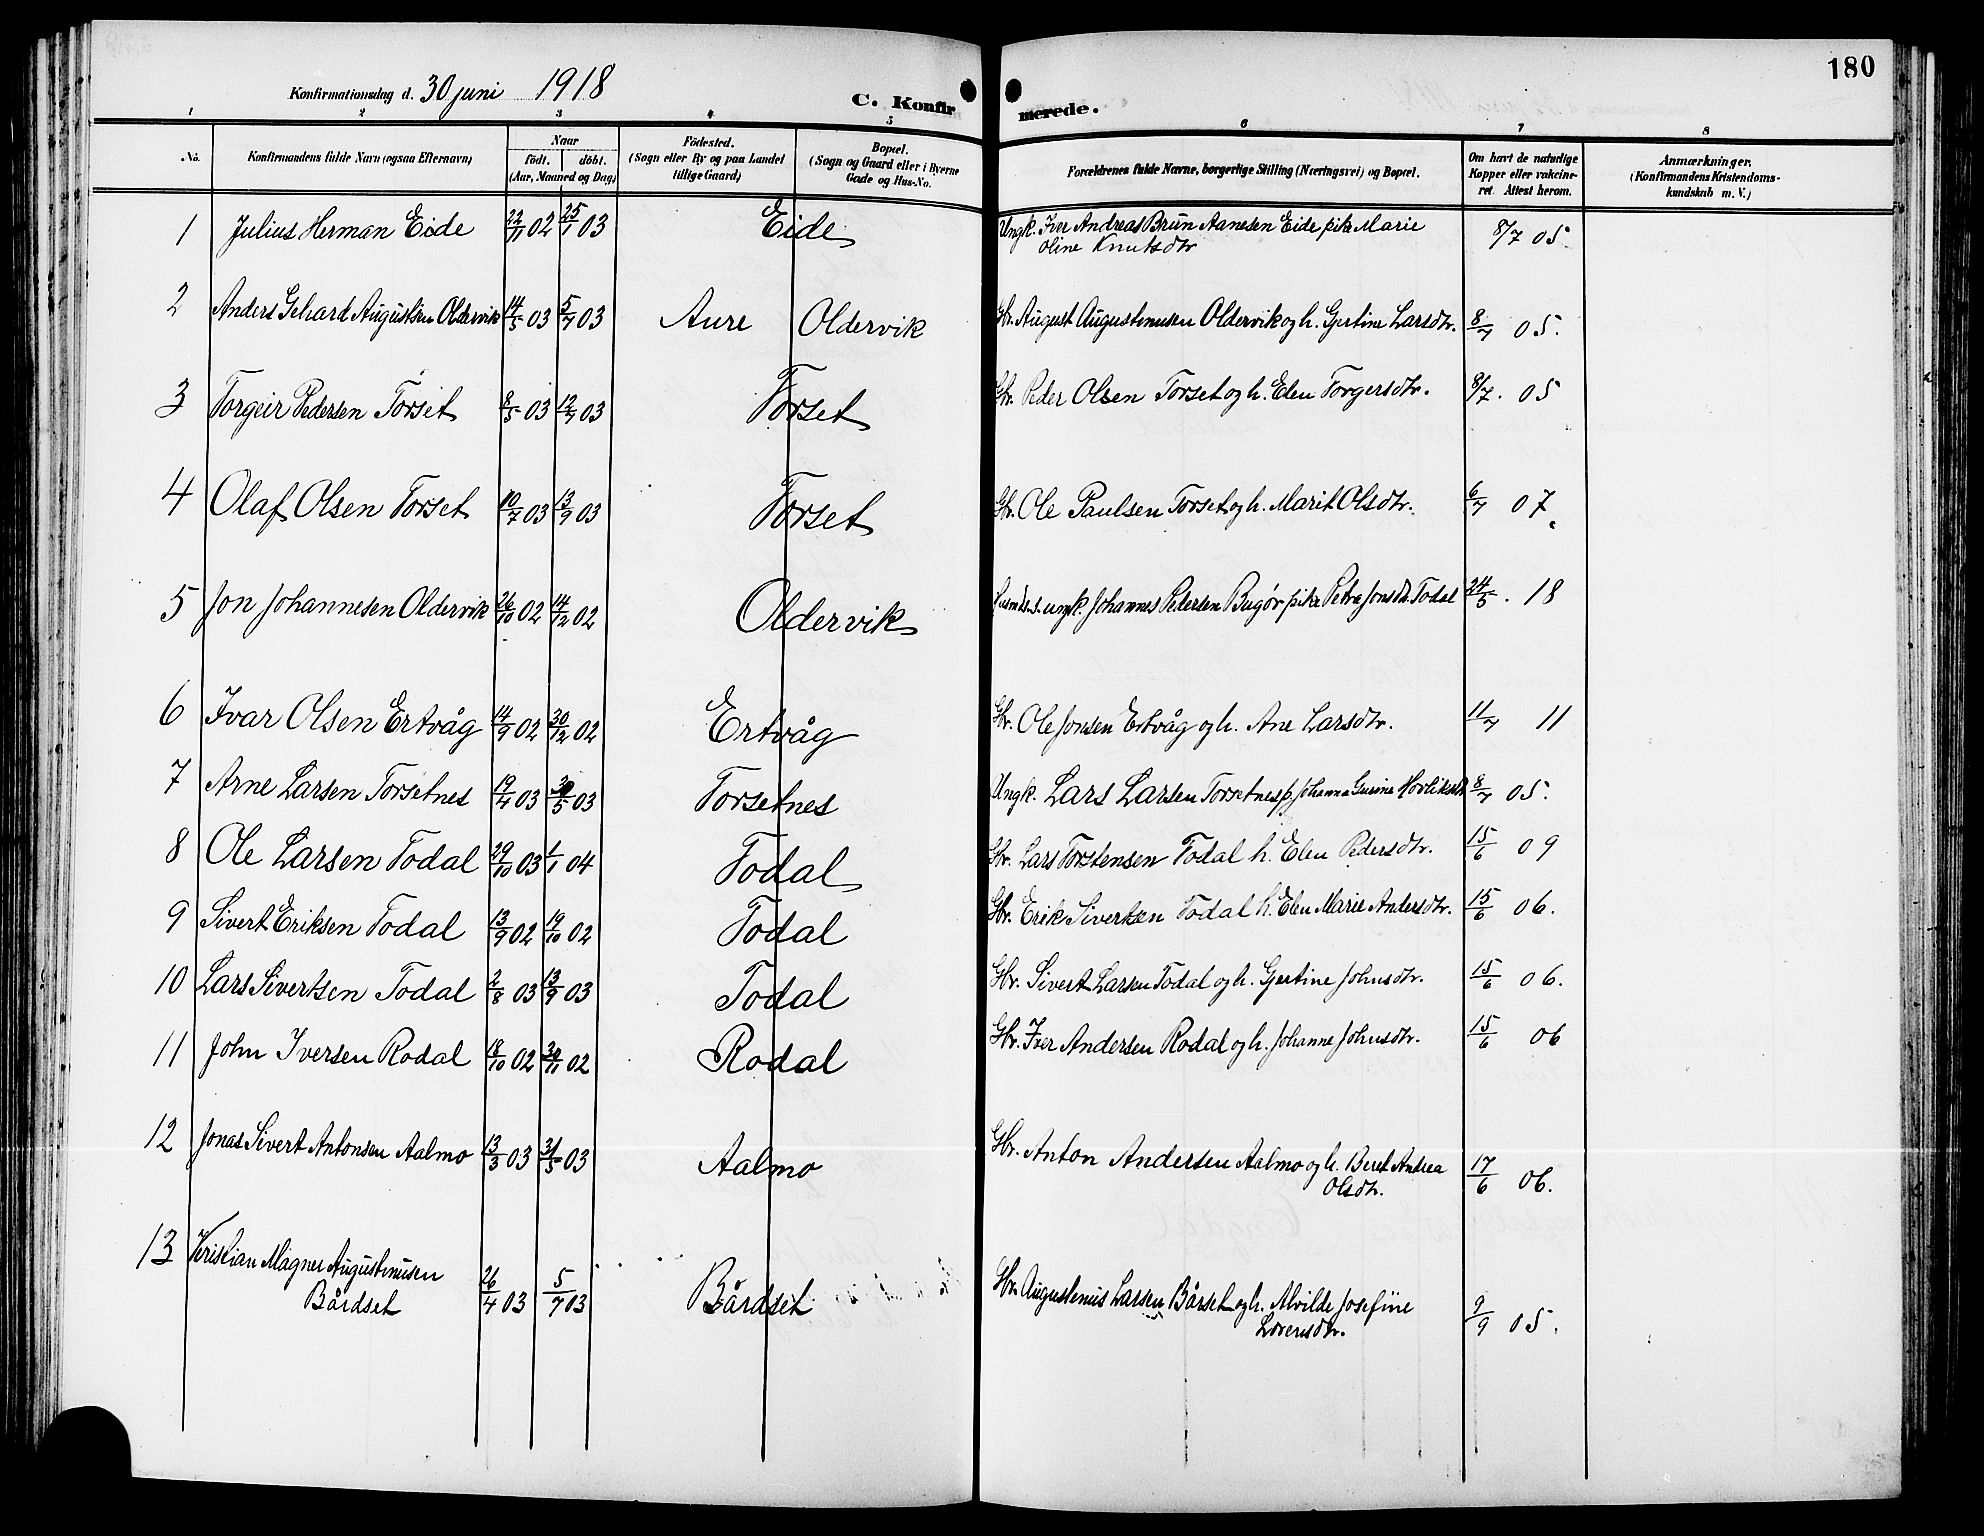 180
Konfirmationsdag d. 30 juni 1918
C. Konfirmerede.
1 2 3 4 5 6 7 8
No. Konfirmandens fulde Navn (ogsaa Efternavn) Naar født. døbt. (Aar, Maaned og Dag) Fødested. (Sogn eller By og paa Landet tillige Gaard) Bopæl. (Sogn og Gaard eller i Byerne Gade og Hus-No. Forældrenes fulde Navne, borgerlige Stilling (Næringsvei) og Bopæl. Om havt de naturlige Kopper eller vakcineret. Attest herom. Anmærkninger. (Konfirmandens Kristendomskundskab m. V.)
1 Julius Herman Eide 22/11 02 25/1 03 Eide Ungk. Iver Andreas Brun Aanesen Eide pike Marie 8/7 05.
Oline Knutsdtr
2 Anders Gehard Augustsen Oldervik 14/5 03 5/7 03 Aure Oldervik Gbr. August Augustinusen Oldervik og h. Gjertine Larsdtr. 8/7 05.
3 Torgeir Pedersen Torset 8/5 03 12/7 03 Torset Gbr. Peder Olsen Torset og h. Elen Torgersdtr. 8/7. 05
4 Olaf Olsen Torset 10/7 03 13/9 03 Torset Gbr. Ole Paulsen Torset og h. Marit Olsdtr. 6/7 07.
5 Jon Johannesen Oldervik 26/10 02 14/12 02 Oldervik Husmds. s. ungk. Johannes Pedersen Bugør pike Petra Jonsdtr. Todal 24/5. 18
6 Ivar Olsen Ertvåg 14/9 02 30/12 02 Ertvåg Gbr. Ole Jonsen Ertvåg og h. Ane Larsdtr. 11/7 11
7 Arne Larsen Torsetnes 19/4 03 /5 03 Torsetnes Ungk. Lars Larsen Torsetnes p. Johanna Gurine 8/7 05.
8 Ole Larsen Todal 29/10 03 1/1 04 Todal Gbr. Lars Torstensen Todal h. Elen Pedersdtr. 15/6 09
9 Sivert Eriksen Todal 13/9 02 19/10 02 Todal Gbr. Erik Sivertsen Todal h. Elen Marie Andersdtr. 15/6 06.
10 Lars Sivertsen Todal 2/8 03 13/9 03 Todal Gbr. Sivert Larsen Todal og h. Gjertine Johnsdtr. 15/6 06.
11 John Iversen Rodal 18/10 02 30/11 02 Rodal Gbr. Iver Andersen Rodal og h. Johanne Johnsdtr. 15/6 06
12 Jonas Sivert Antonsen Aalmo 13/3 03 31/5 03 Aalmo Gbr. Anton Andersen Aalmo og h. Beret Andrea 17/6 06.
Olsdtr.
13 Kristian Magner Augustinusen
Bårdset 26/4 03 5/7 03 Bårdset Gbr. Augustenus Larsen Bårset og h. Alvilde Josefine 9/9 05.
Lorensdtr.